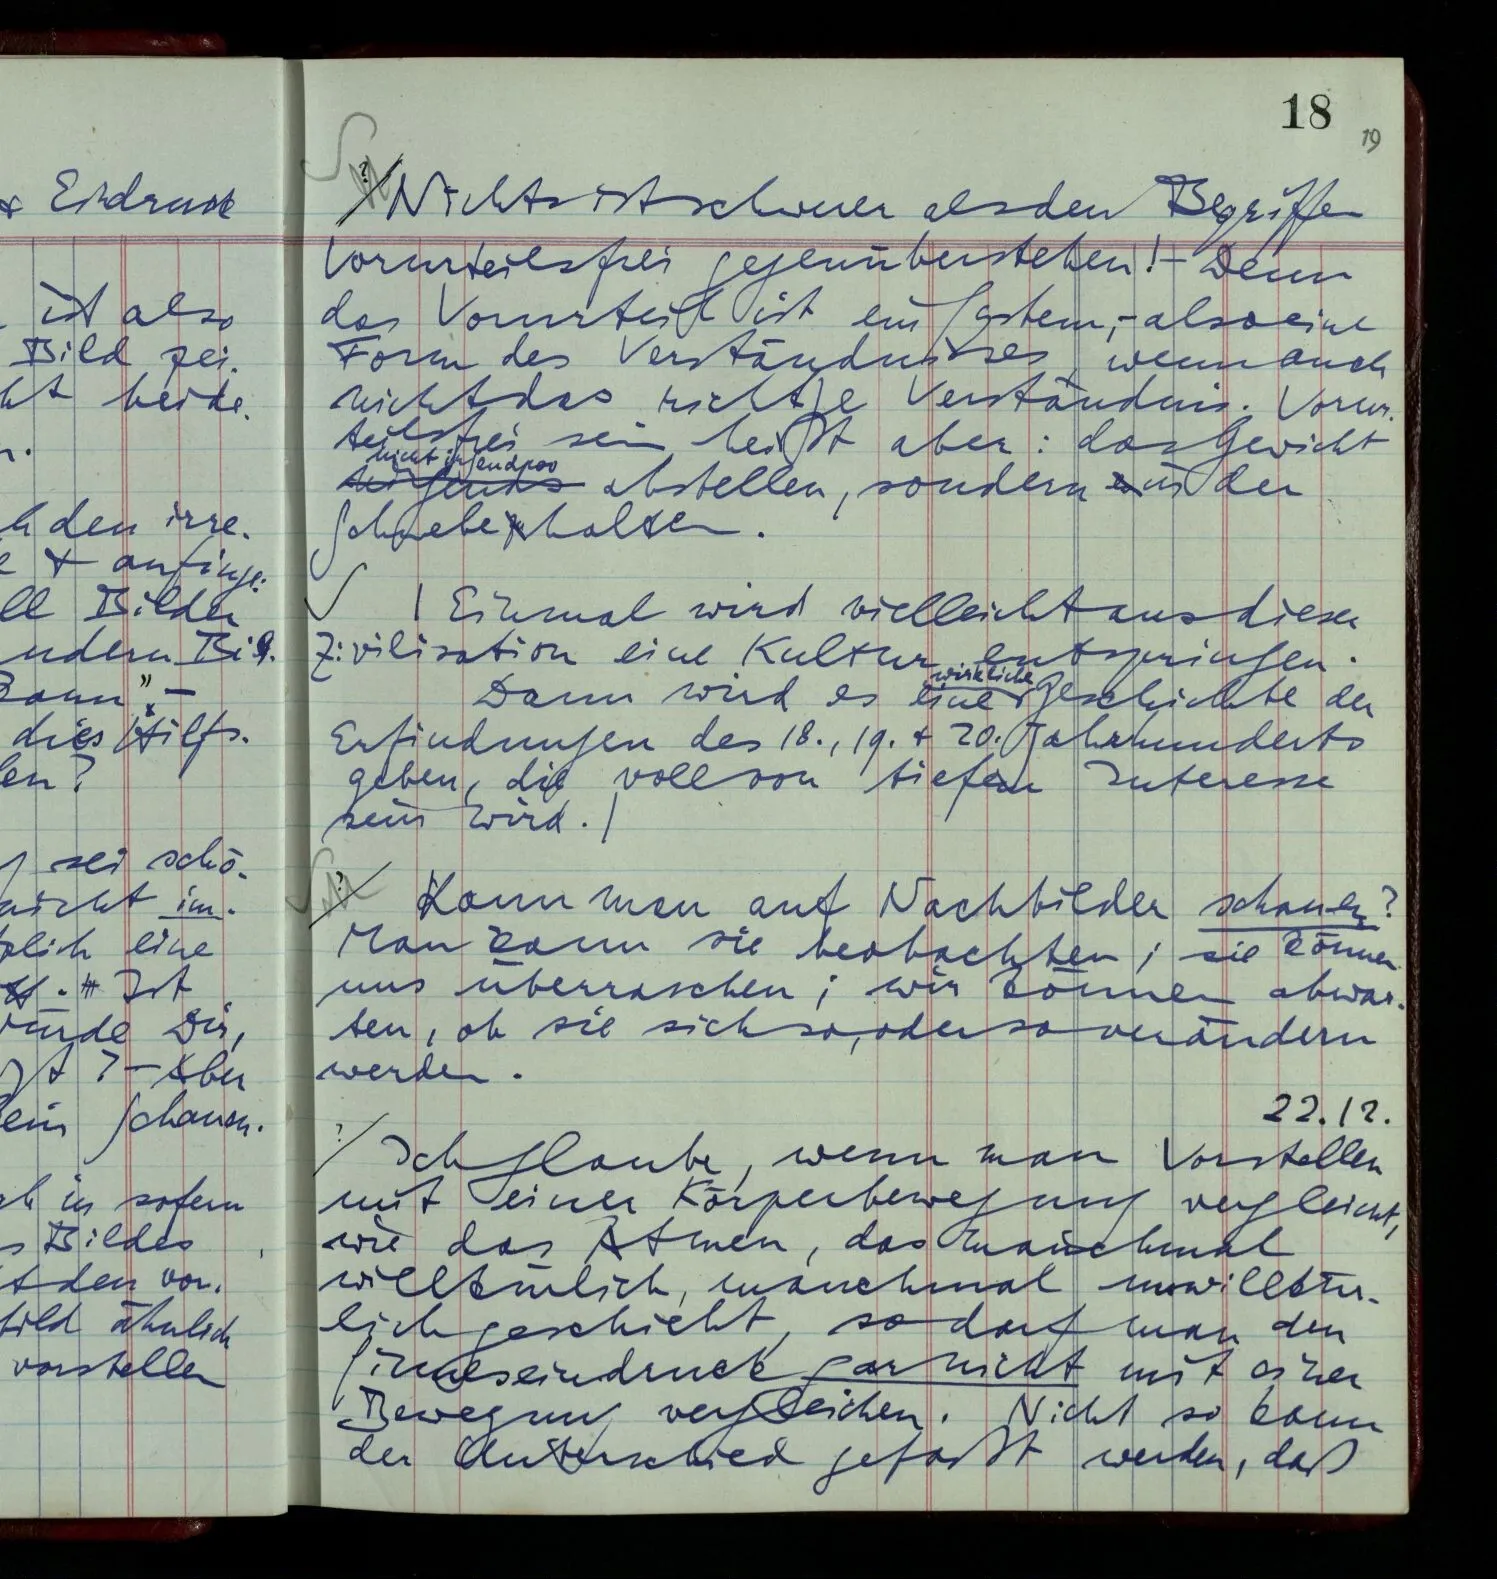 18
19
& Eindruck
ist also
Bild zei-
beide.
den irre-
& anfinge:
Bilder
andern Bil
kann", –
dies Hilfs-
sei schö-
nicht im-
eine
Ist
würde Dir,
? – Aber
ein Schauen.
in sofern
Bildes
den vor-
bild ähnlich
vorstellen
?/ Nichts ist schwerer als den Begriffen
vorurteilsfrei gegenüberstehen! – Denn
das Vorurteil ist ein System, – also eine
Form des Verständnisses, wenn auch
nicht das richtige Verständnis. Vorur-
teilsfrei sein heißt aber: das Gewicht
nicht irgendwo
nirgends abstellen, sondern in der
Schwebe halten.
| Einmal wird vielleicht aus dieser
Zivilisation eine Kultur entspringen.
wirkliche
Dann wird es eine Geschichte der
Erfindungen des 18., 19. & 20. Jahrhunderts
geben, die voll von tiefem Interesse
sein wird. |
?/ Kann man auf Nachbilder schauen?
Man kann sie beobachten; sie können
uns überraschen; wir können abwar-
ten, ob sie sich so, oder so verändern
werden.
22.12.
?/ Ich glaube, wenn man Vorstellen
mit einer Körperbewegung vergleicht,
wie das Atmen, das manchmal
willkürlich, manchmal unwillkür-
lich geschieht, so darf man den
Sinneseindruck garnicht mit einer
Bewegung vergleichen. Nicht so kann
der Unterschied gefaßt werden, daß